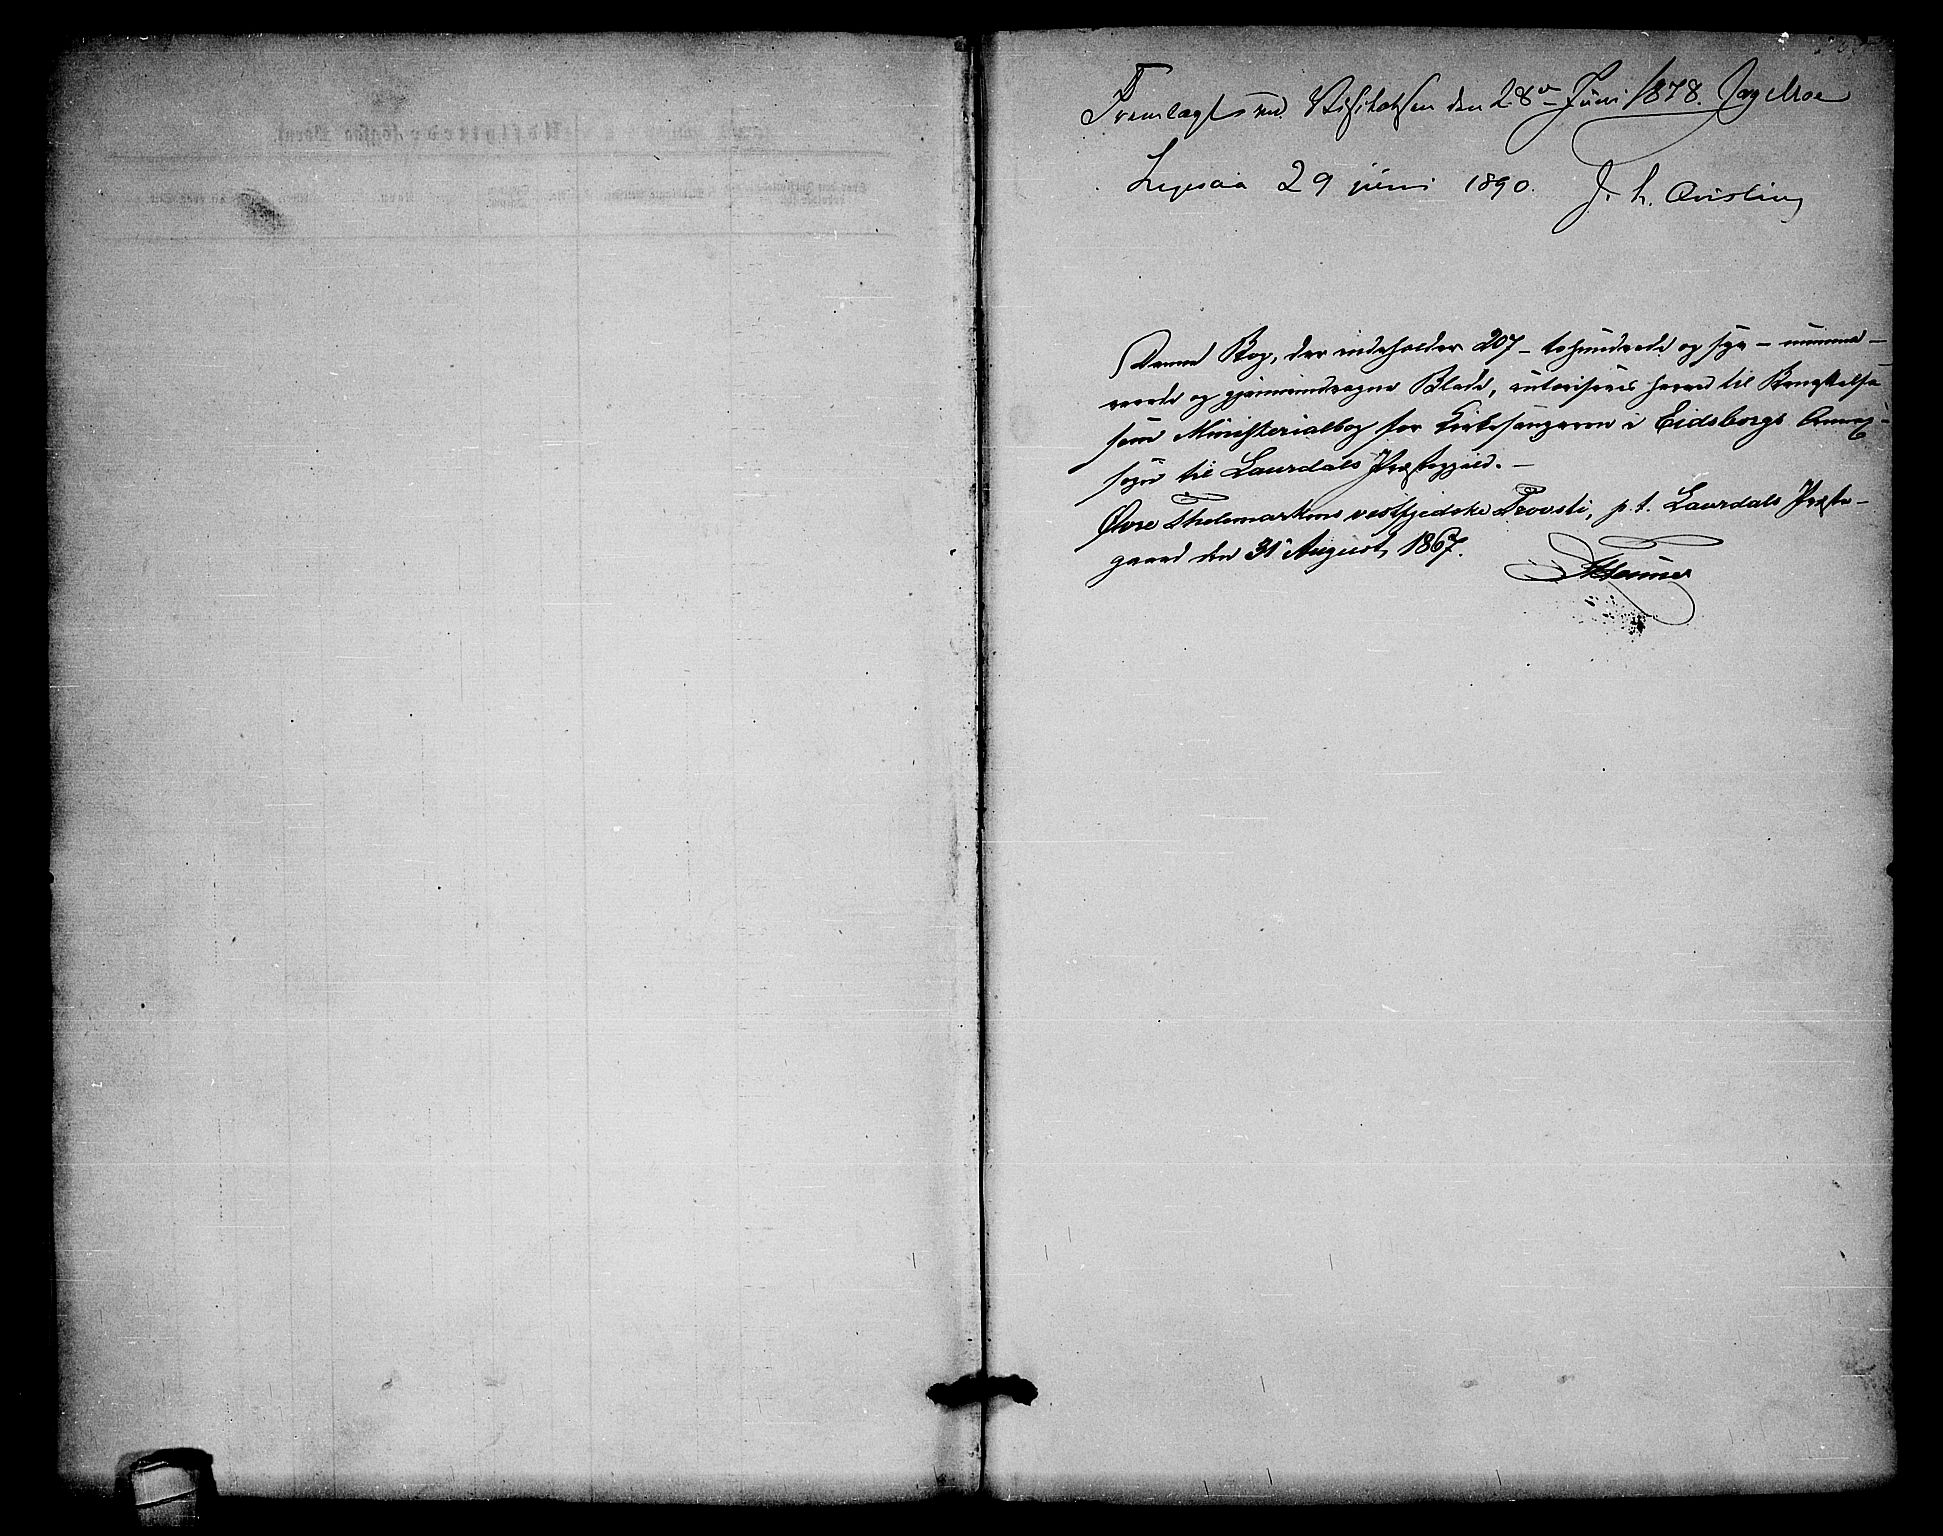 Fremlagt ved Visitatsen den 28de Juni 1878. Jørg Moe
29 juni 1890. J. L. Qvisling
Denne Bog, der indeholder 207 – tohundrede og syv – numme-
rerede og gjennemdragne Blade, autoriseres herved til Benyttelse
som Ministerialbog for Kirkesangeren i Eidsborgs Annex-
sogn til Laurdals Præstegjæld. –
Øvre Thelemarkens vestfjeldske Provsti, p. t. Laurdals Præste-
gaard den 31 August 1867.